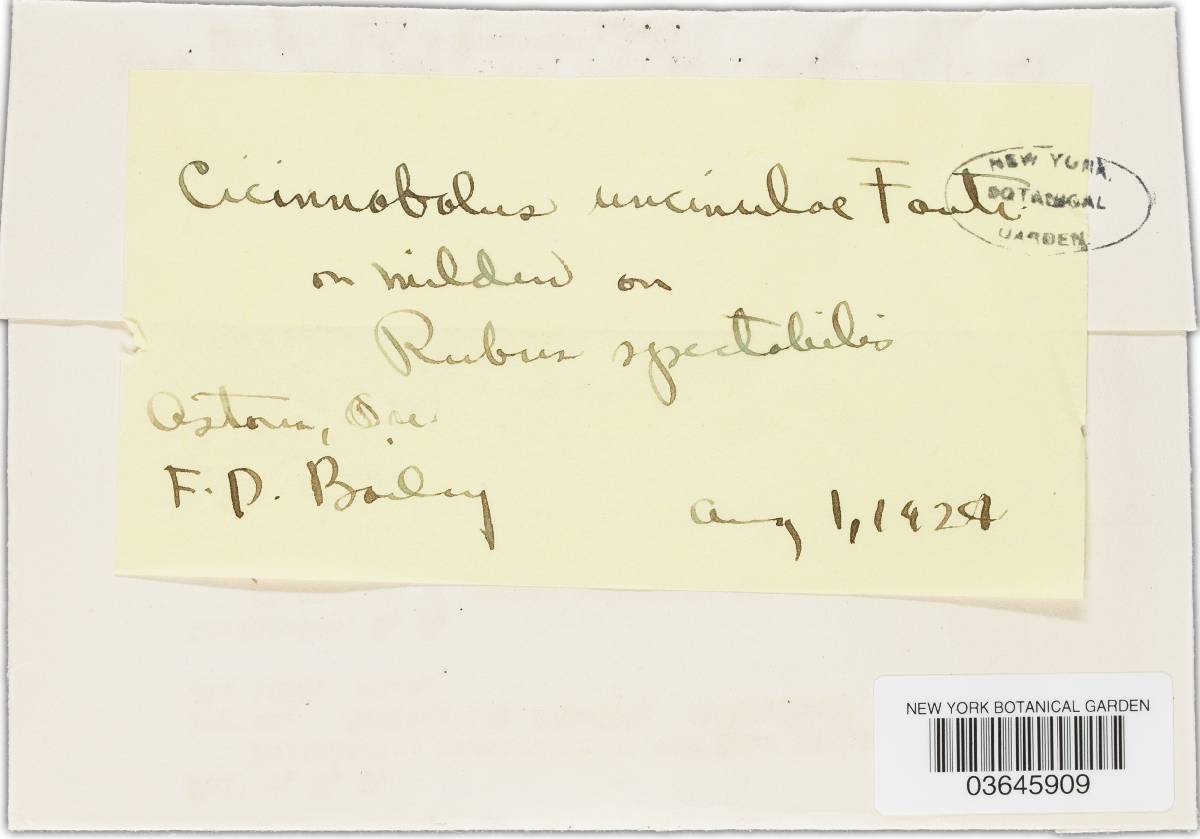 Cicinnobolus uncinulae Fautr.
NEW YORK
BOTANICAL
GARDEN
on mildew on
Rubus spectabilis
Astoria, Ore.
F. D. Bailey
Aug 1, 1924
NEW YORK BOTANICAL GARDEN
03645909